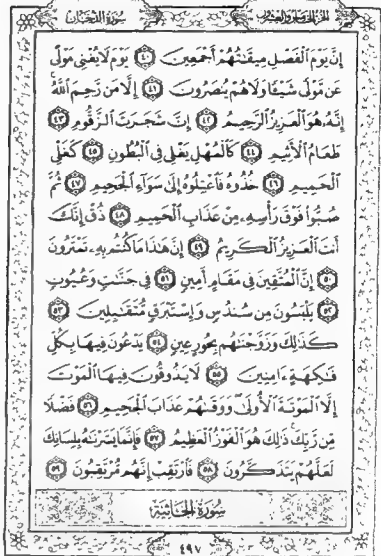 الجزء الخامس والعشرون سورة الدخان
إِنَّ يَوْمَ ٱلْفَصْلِ مِيقَٰتُهُمْ أَجْمَعِينَ ٤٠ يَوْمَ لَا يُغْنِى مَوْلًى
عَن مَّوْلًى شَيْـًٔا وَلَا هُمْ يُنصَرُونَ ٤١ إِلَّا مَن رَّحِمَ ٱللَّهُ
إِنَّهُۥ هُوَ ٱلْعَزِيزُ ٱلرَّحِيمُ ٤٢ إِنَّ شَجَرَتَ ٱلزَّقُّومِ ٤٣
طَعَامُ ٱلْأَثِيمِ ٤٤ كَٱلْمُهْلِ يَغْلِى فِى ٱلْبُطُونِ ٤٥ كَغَلْىِ
ٱلْحَمِيمِ ٤٦ خُذُوهُ فَٱعْتِلُوهُ إِلَىٰ سَوَآءِ ٱلْجَحِيمِ ٤٧ ثُمَّ
صُبُّوا۟ فَوْقَ رَأْسِهِۦ مِنْ عَذَابِ ٱلْحَمِيمِ ٤٨ ذُقْ إِنَّكَ
أَنتَ ٱلْعَزِيزُ ٱلْكَرِيمُ ٤٩ إِنَّ هَٰذَا مَا كُنتُم بِهِۦ تَمْتَرُونَ
٥٠ إِنَّ ٱلْمُتَّقِينَ فِى مَقَامٍ أَمِينٍ ٥١ فِى جَنَّٰتٍ وَعُيُونٍ
٥٢ يَلْبَسُونَ مِن سُندُسٍ وَإِسْتَبْرَقٍ مُّتَقَٰبِلِينَ ٥٣
كَذَٰلِكَ وَزَوَّجْنَٰهُم بِحُورٍ عِينٍ ٥٤ يَدْعُونَ فِيهَا بِكُلِّ
فَٰكِهَةٍ ءَامِنِينَ ٥٥ لَا يَذُوقُونَ فِيهَا ٱلْمَوْتَ
إِلَّا ٱلْمَوْتَةَ ٱلْأُولَىٰ وَوَقَىٰهُمْ عَذَابَ ٱلْجَحِيمِ ٥٦ فَضْلًا
مِّن رَّبِّكَ ذَٰلِكَ هُوَ ٱلْفَوْزُ ٱلْعَظِيمُ ٥٧ فَإِنَّمَا يَسَّرْنَٰهُ بِلِسَانِكَ
لَعَلَّهُمْ يَتَذَكَّرُونَ ٥٨ فَٱرْتَقِبْ إِنَّهُم مُّرْتَقِبُونَ ٥٩
سورة الجاثية
٤٩٧